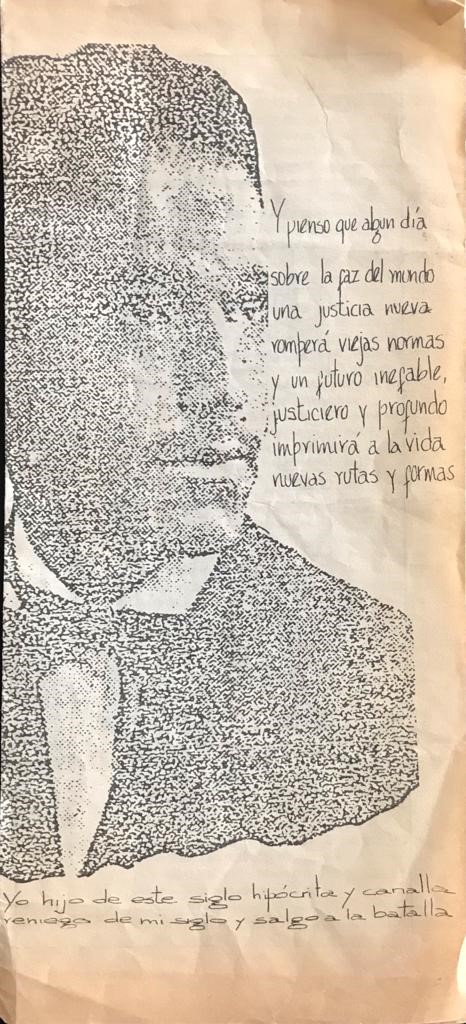 Y pienso que algun día
sobre la faz del mundo
una justicia nueva
romperá viejas normas
y un futuro inefable,
justiciero y profundo
imprimirá a la vida
nuevas rutas y formas
Yo hijo de este siglo hipócrita y canalla
reniego de mi siglo y salgo a la batalla